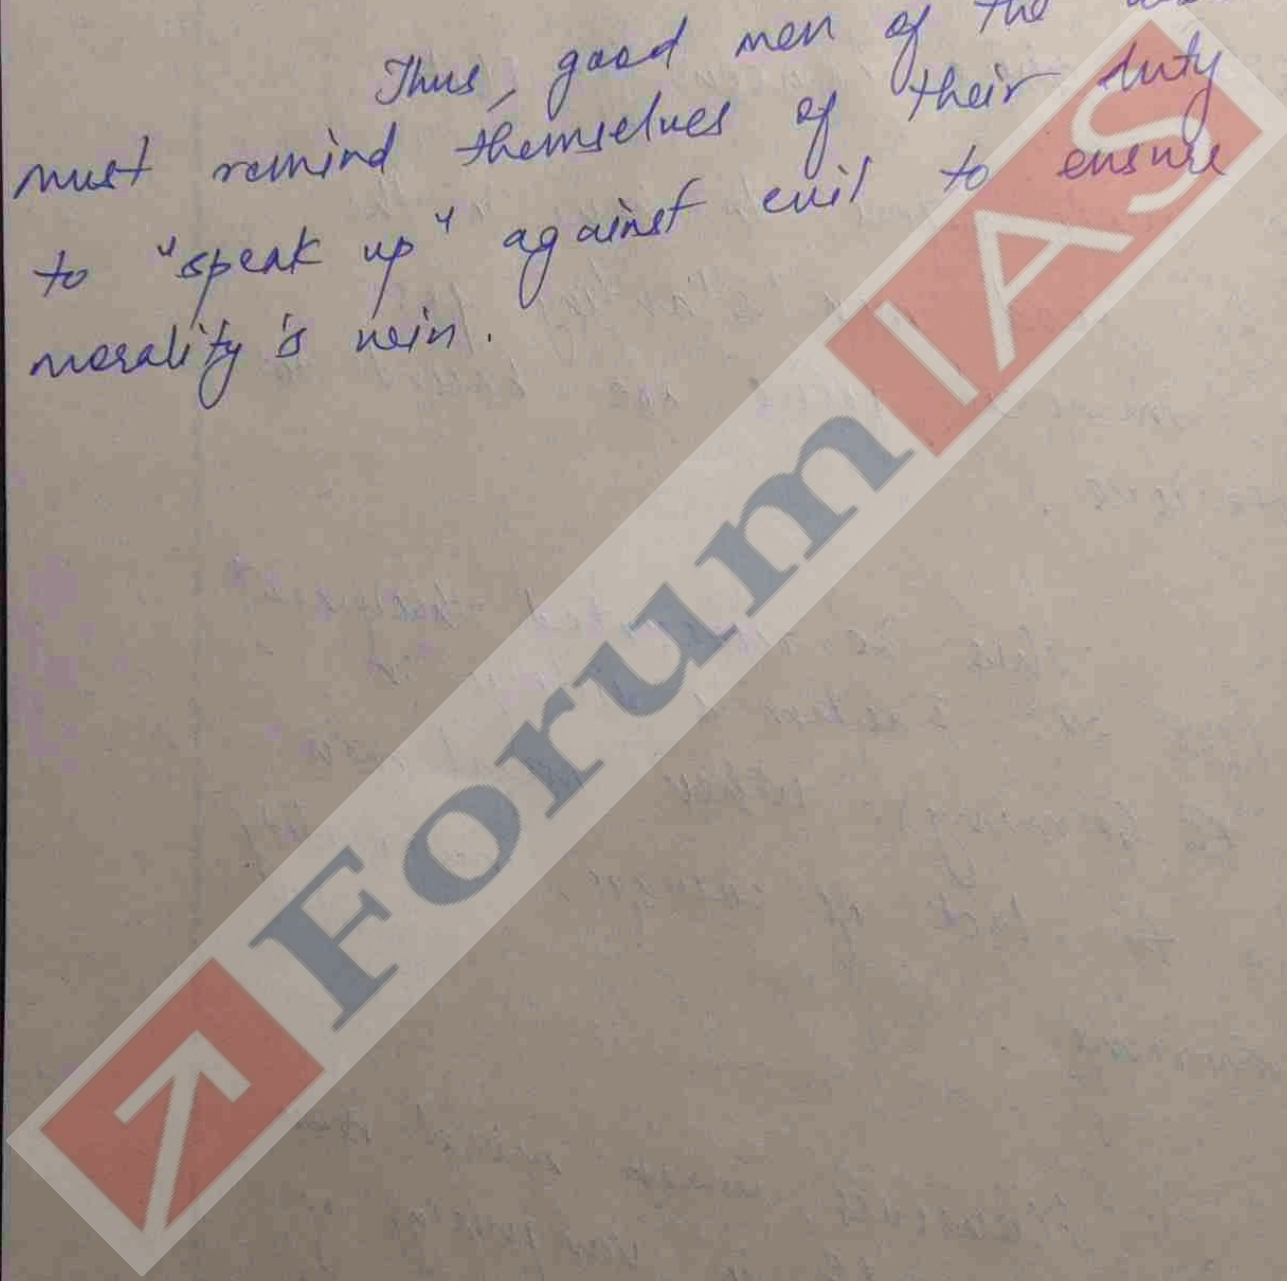 Thus, good men of the
must remind themselves of their duty
to "speak up" against evil to ensure
morality is
ForumIAS